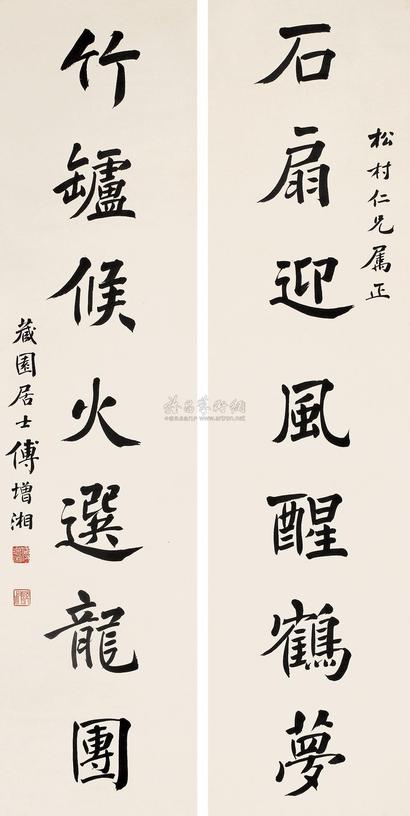 松村仁兄属正
石扇迎風醒鶴夢
竹罏候火選龍團
藏園居士傅增湘
www.artron.net